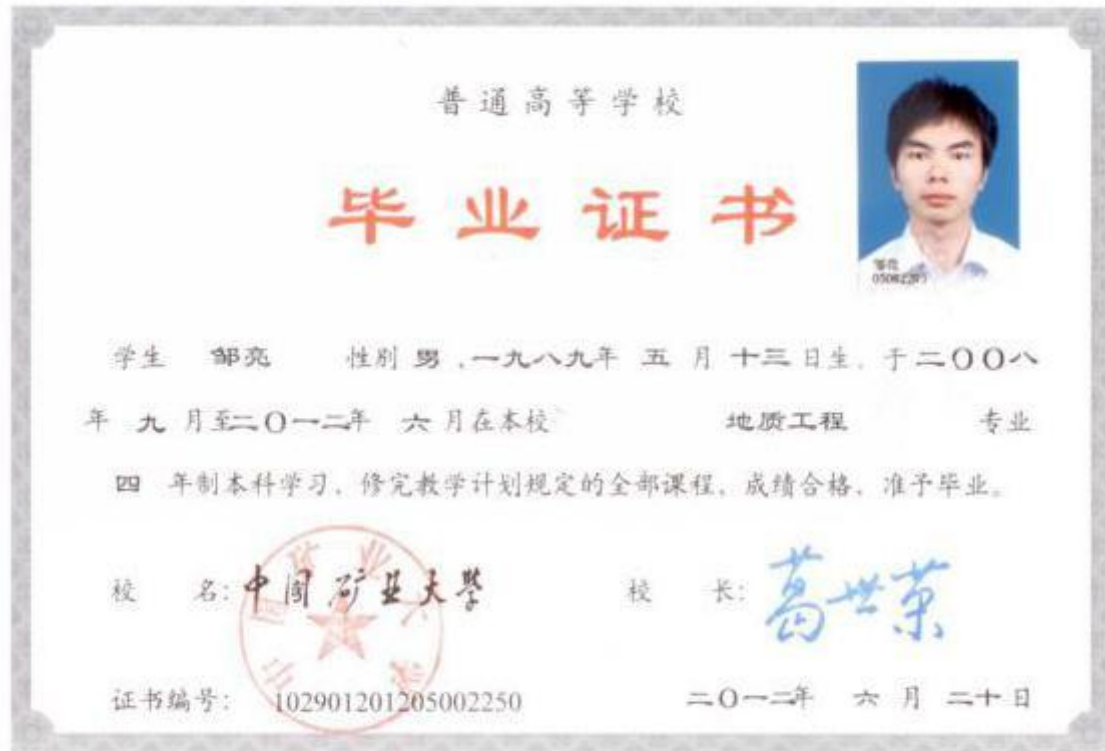 普通高等学校
毕业证书
邹亮
学生 邹亮 性别 男，一九八九年 五 月 十三 日生，于二〇〇八
年 九 月至二〇一二年 六 月在本校 地质工程 专业
四 年制本科学习，修完教学计划规定的全部课程，成绩合格，准予毕业。
校 名：中国矿业大學
校 长：葛世荣
中国矿业大学
证书编号： 102901201205002250
二〇一二年 六 月 二十日